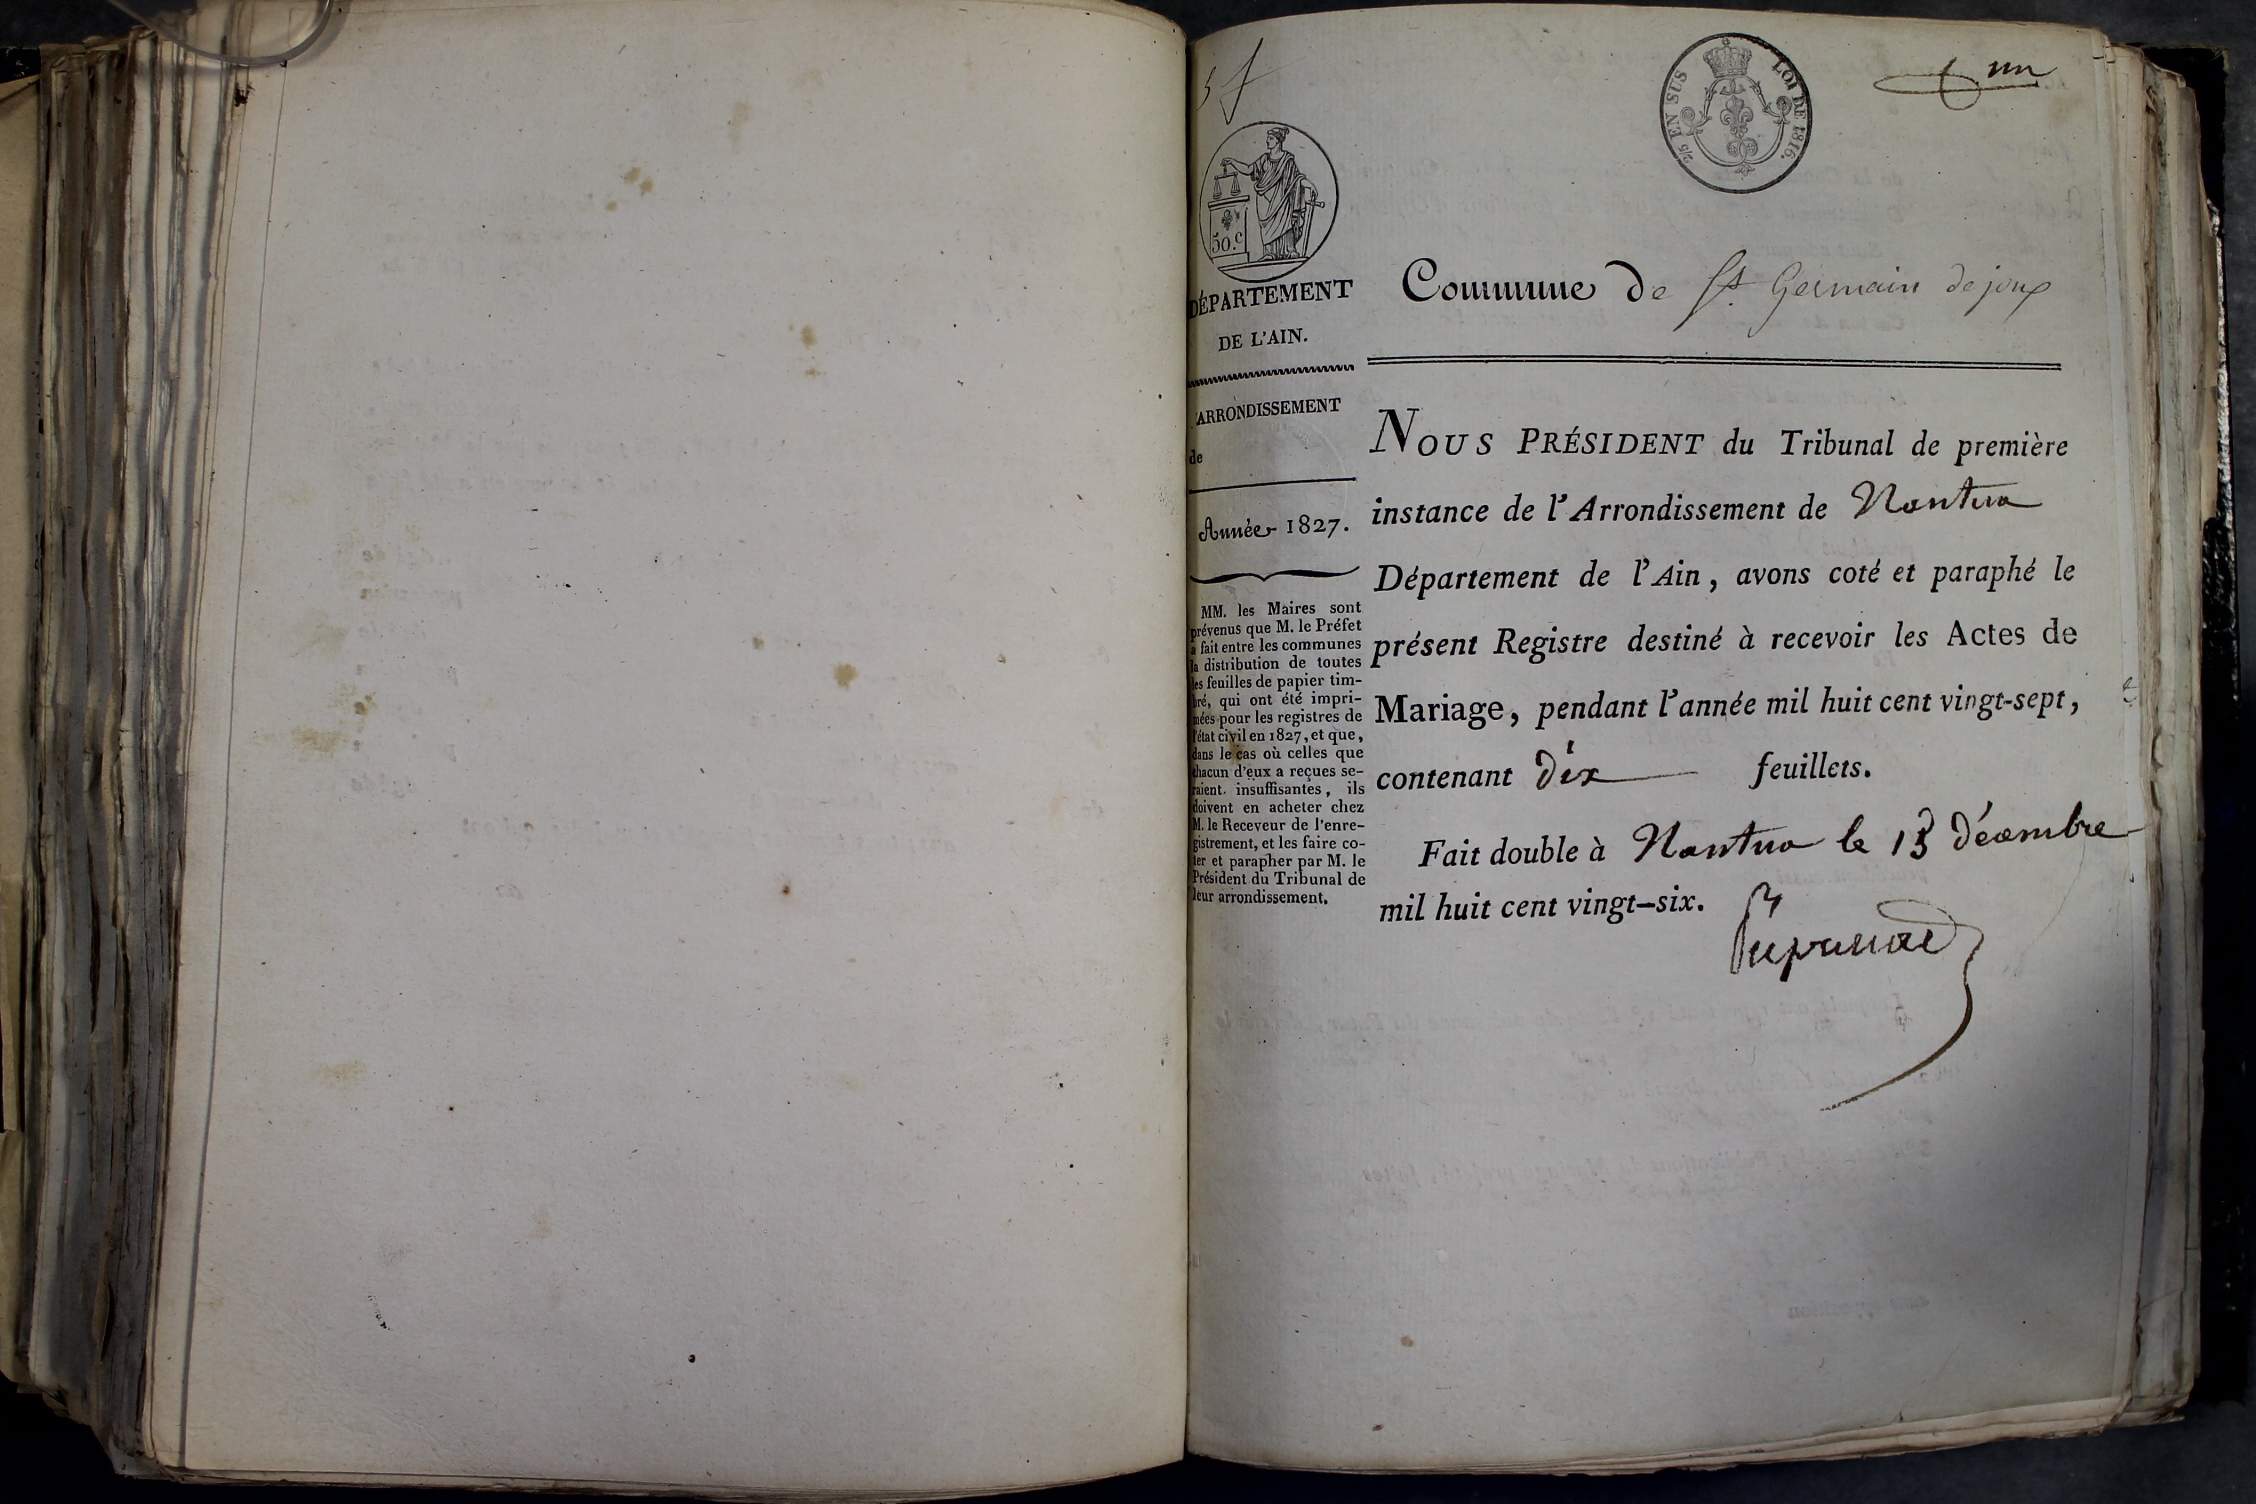 un
2/5 EN SUS LOI DE 1816.
50.c
DÉPARTEMENT
DE L'AIN.
ARRONDISSEMENT
de
Année 1827.
MM. les Maires sont
prévenus que M. le Préfet
a fait entre les communes
la distribution de toutes
les feuilles de papier tim-
bré, qui ont été impri-
mées pour les registres de
l'état civil en 1827, et que,
dans le cas où celles que
chacun d'eux a reçues se-
raient insuffisantes, ils
doivent en acheter chez
M. le Receveur de l'enre-
gistrement, et les faire co-
ter et parapher par M. le
Président du Tribunal de
leur arrondissement.
Commune de St. Germain de joux
NOUS PRÉSIDENT du Tribunal de première
instance de l'Arrondissement de Nantua
Département de l'Ain, avons coté et paraphé le
présent Registre destiné à recevoir les Actes de
Mariage, pendant l'année mil huit cent vingt-sept,
contenant dix feuillets.
Fait double à Nantua le décembre
mil huit cent vingt-six.